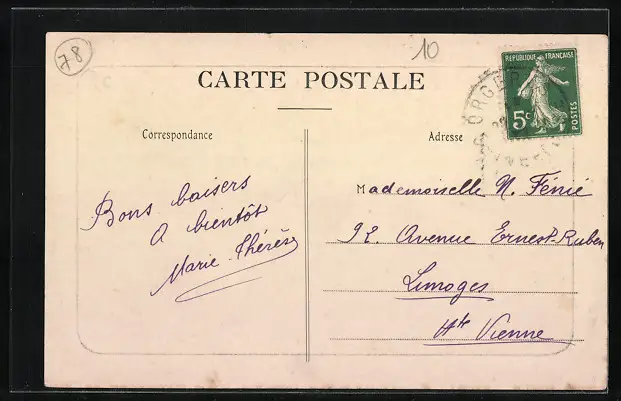 78
10
CARTE POSTALE
REPUBLIQUE FRANÇAISE
5c
POSTES
Correspondance
Adresse
Bons baisers
A bientôt
Marie-Thérèse
Mademoiselle N. Fénié
92. Avenue Ernest-Ruben
Limoges
Hte Vienne